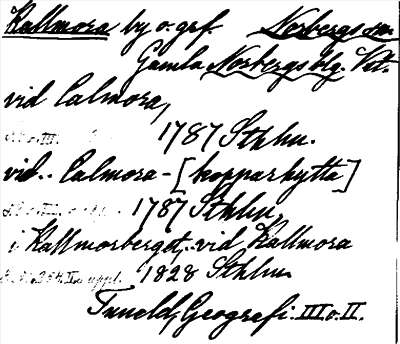 Kallmora by o. grf. Norbergs sn.
Gamla Norbergs blg. Vstm.
vid Calmora,
1787 Sthlm.
vid Calmora - [kopparhytta]
1787 Sthlm,
i Kallmorberget, vid Kallmora
1828 Sthlm
Tuneld, Geografi. III o. II.